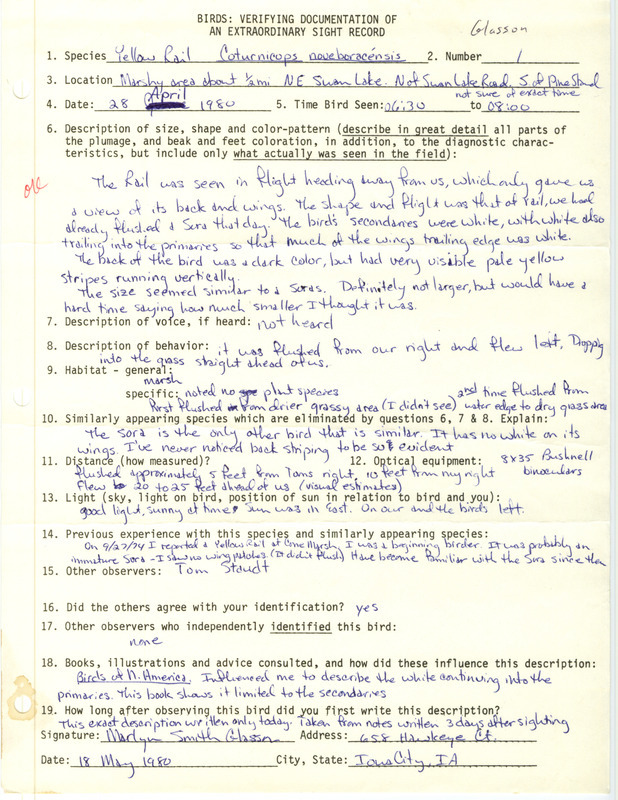 BIRDS: VERIFYING DOCUMENTATION OF
AN EXTRAORDINARY SIGHT RECORD
Glasson
1. Species Yellow Rail Coturnicops noveboracénsis 2. Number 1
3. Location Marshy area about 1/2 mi NE Swan Lake. N of Swan Lake Road, S of Pine Stand
4. Date: 28 April 1980 5. Time Bird Seen: 06:30 to 08:00
not sure of exact time
6. Description of size, shape and color-pattern (describe in great detail all parts of
the plumage, and beak and feet coloration, in addition, to the diagnostic charac-
teristics, but include only what actually was seen in the field):
OK
The Rail was seen in flight heading away from us, which only gave us
a view of its back and wings. The shape and flight was that of rail, we had
already flushed a Sora that day. The bird's secondaries were white, with white also
trailing into the primaries so that much of the wings trailing edge was white.
The back of the bird was a dark color, but had very visible pale yellow
stripes running vertically.
The size seemed similar to a Soras. Definitely not larger, but would have a
hard time saying how much smaller I thought it was.
7. Description of voice, if heard: not heard
8. Description of behavior: it was flushed from our right and flew left, Dropping
into the grass straight ahead of us.
9. Habitat - general:
marsh
specific: noted no plant species
First flushed from drier grassy area (I didn't see) 2nd time flushed from
water edge to dry grass area
10. Similarly appearing species which are eliminated by questions 6, 7 & 8. Explain:
The Sora is the only other bird that is similar. It has no white on its
wings. I've never noticed back striping to be so evident
11. Distance (how measured)? 12. Optical equipment: 8x35 Bushnell
binoculars
flushed approximately 5 feet from Toms right, 10 feet from my right
flew to 20 to 25 feet ahead of us (visual estimates)
13. Light (sky, light on bird, position of sun in relation to bird and you):
good light, sunny at time. Sun was in East. On our and the birds left.
14. Previous experience with this species and similarly appearing species:
On 9/27/74 I reported a Yellow Rail at Cone Marsh, I was a beginning birder. It was probably an
immature Sora - I saw no wing patches (It didn't flush) Have become familiar with the Sora since then
15. Other observers: Tom Staudt
16. Did the others agree with your identification? yes
17. Other observers who independently identified this bird:
none
18. Books, illustrations and advice consulted, and how did these influence this description:
Birds of N. America. Influenced me to describe the white continuing into the
primaries. This book shows it limited to the secondaries
19. How long after observing this bird did you first write this description?
This exact description written only today. Taken from notes written 3 days after sighting
Signature: Marlyn Smith Glasson Address: 658 Hawkeye Ct.
Date: 18 May 1980 City, State: Iowa City, IA